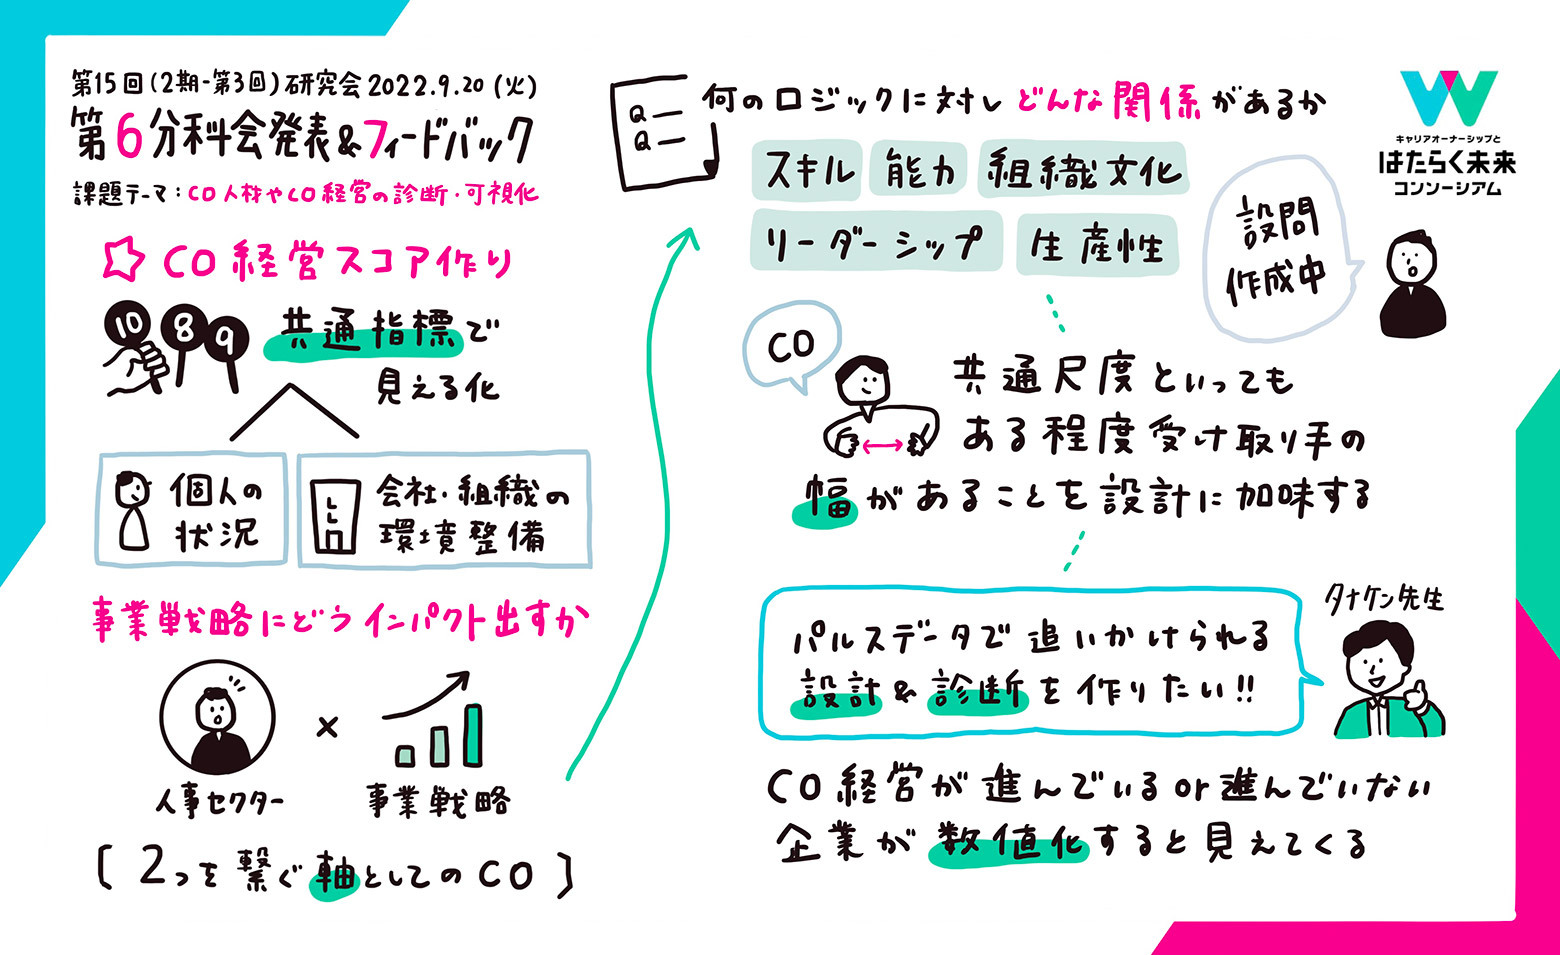 第15回(2期-第3回)研究会2022.9.20(火)
第6分科会発表&フィードバック
課題テーマ:CO人材やCO経営の診断・可視化
☆CO経営スコア作り
10 8 9
共通指標で
見える化
個人の
状況
会社・組織の
環境整備
事業戦略にどうインパクト出すか
人事セクター
×
事業戦略
[2つを繋ぐ軸としてのCO]
Q
Q
何のロジックに対しどんな関係があるか
スキル
能力
組織文化
リーダーシップ
生産性
設問
作成中
キャリアオーナーシップと
はたらく未来
コンソーシアム
CO
共通尺度といっても
ある程度受け取り手の
幅があることを設計に加味する
タナケン先生
パルスデータで追いかけられる
設計&診断を作りたい!!
CO経営が進んでいるor進んでいない
企業が数値化すると見えてくる